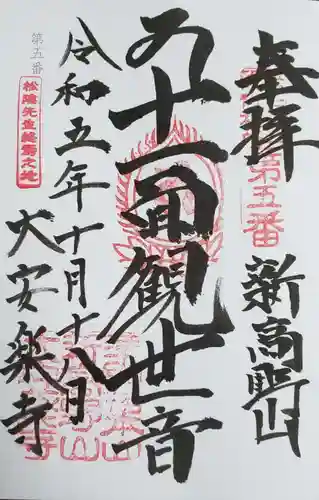 奉拝
第五番
新高野山
十一面観世音
令和五年十月十八日
第五番
松陰先生終焉之地
大安楽寺